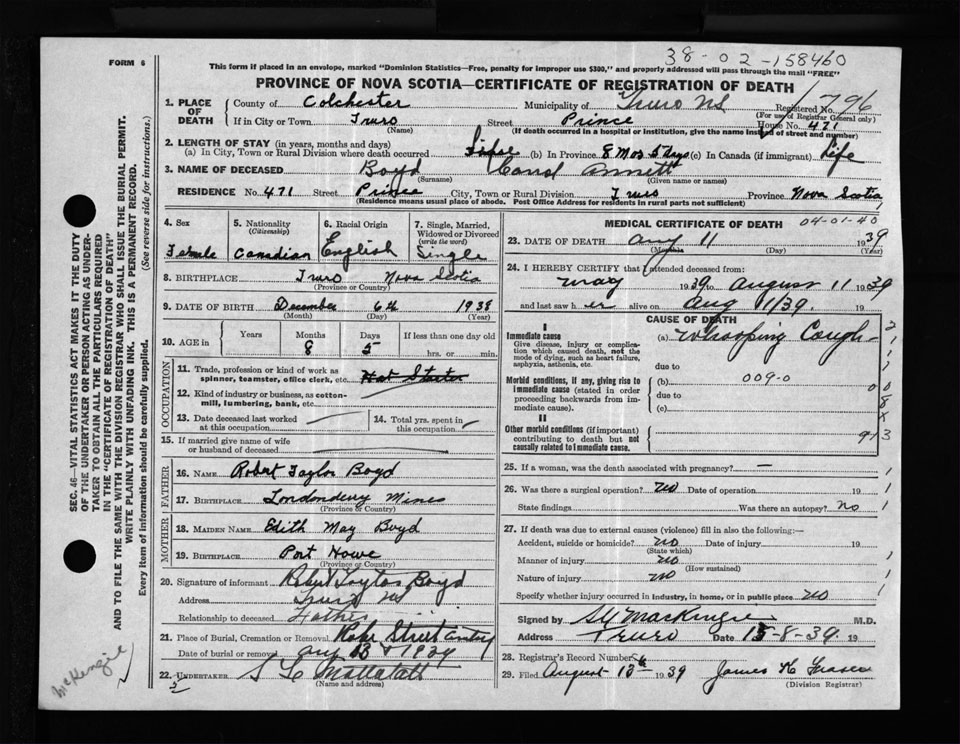 38-02-158460
FORM 6
This form if placed in an envelope, marked "Dominion Statistics—Free, penalty for improper use $300," and properly addressed will pass through the mail "FREE"
PROVINCE OF NOVA SCOTIA—CERTIFICATE OF REGISTRATION OF DEATH
1. PLACE OF DEATH
County of Colchester Municipality of Truro NS Registered No. 1796
(For use of Registrar General only)
If in City or Town Truro Street Prince House No. 471
(Name) (If death occurred in a hospital or institution, give the name instead of street and number)
2. LENGTH OF STAY (in years, months and days)
(a) In City, Town or Rural Division where death occurred Life (b) In Province 8 Mos 5 days (c) In Canada (if immigrant) Life
3. NAME OF DECEASED Boyd Carol Annett
(Surname) (Given name or names)
RESIDENCE No. 471 Street Prince City, Town or Rural Division Truro Province Nova Scotia
(Residence means usual place of abode. Post Office Address for residents in rural parts not sufficient)
4. Sex Female
5. Nationality (Citizenship) Canadian
6. Racial Origin English
7. Single, Married, Widowed or Divorced (write the word) Single
8. BIRTHPLACE Truro Nova Scotia
(Province or Country)
9. DATE OF BIRTH December 6th 1938
(Month) (Day) (Year)
10. AGE in Years Months Days If less than one day
8 5 hrs. or min.
OCCUPATION
11. Trade, profession or kind of work as spinner, teamster, office clerk, etc.
12. Kind of industry or business, as cotton-mill, lumbering, bank, etc.
13. Date deceased last worked at this occupation
14. Total yrs. spent in this occupation
15. If married give name of wife or husband of deceased
FATHER
16. NAME Robert Taylor Boyd
17. BIRTHPLACE Londonderry Mines
(Province or Country)
MOTHER
18. MAIDEN NAME Edith May Boyd
19. BIRTHPLACE Port Howe
(Province or Country)
20. Signature of informant Robert Taylor Boyd
Address Truro NS
Relationship to deceased Father
21. Place of Burial, Cremation or Removal Street
Date of burial or removal Aug 13 1939
22. UNDERTAKER
(Name and address)
MEDICAL CERTIFICATE OF DEATH
04-01-40
23. DATE OF DEATH Aug 11 1939
(Month) (Day) (Year)
24. I HEREBY CERTIFY that I attended deceased from:
May 1939 to August 11 1939
and last saw her alive on Aug 11/39. 19
CAUSE OF DEATH
I
Immediate cause
Give disease, injury or complication which caused death, not the mode of dying, such as heart failure, asphyxia, asthenia, etc.
(a) Whooping Cough
due to
Morbid conditions, if any, giving rise to immediate cause (stated in order proceeding backwards from immediate cause).
(b) 009-0
due to
(c)
II
Other morbid conditions (if important) contributing to death but not causally related to immediate cause.
25. If a woman, was the death associated with pregnancy? —
26. Was there a surgical operation? No Date of operation 19
State findings Was there an autopsy? No
27. If death was due to external causes (violence) fill in also the following:—
Accident, suicide or homicide? No Date of injury 19
(State which)
Manner of injury No
(How sustained)
Nature of injury No
Specify whether injury occurred in industry, in home, or in public place No
Signed by MacKenzie M.D.
Address Truro Date 15-8-39. 19
28. Registrar's Record Number
29. Filed August 15 1939 James H Fraser
(Division Registrar)
SEC. 46—VITAL STATISTICS ACT MAKES IT THE DUTY OF THE UNDERTAKER OR PERSON ACTING AS UNDERTAKER TO OBTAIN ALL THE PARTICULARS REQUIRED IN THE "CERTIFICATE OF REGISTRATION OF DEATH"
AND TO FILE THE SAME WITH THE DIVISION REGISTRAR WHO SHALL ISSUE THE BURIAL PERMIT.
WRITE PLAINLY WITH UNFADING INK. THIS IS A PERMANENT RECORD.
Every item of information should be carefully supplied. (See reverse side for instructions.)
McKenzie